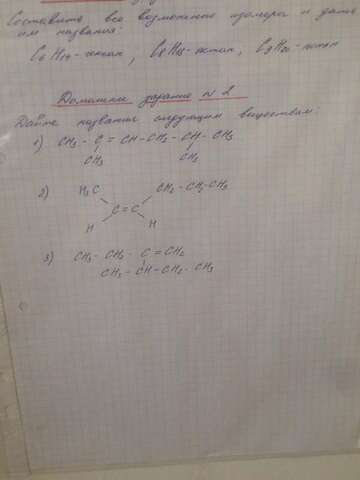 Составить все возможные изомеры и дать
им названия:
C₆H₁₄-гексан,
Домашнее задание №2
Дайте название следующим веществам:
1) CH₃ - C = CH - CH₂ - CH - CH₃
CH₃ CH₃
2) H₃C CH₂-CH₂-CH₃
C=C
H H
3) CH₃ - CH₂ - C = CH₂
CH₃ - CH - CH₂ - CH₃